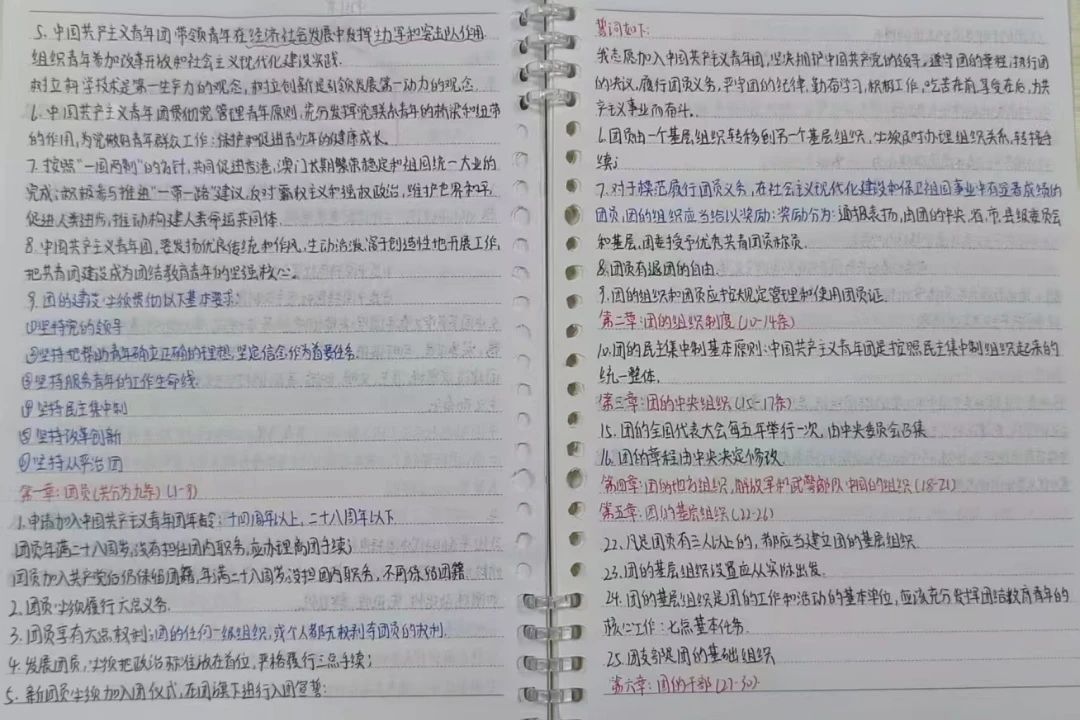 5. 中国共产主义青年团带领青年在经济社会发展中发挥生力军和突击队作用
组织青年参加改革开放和社会主义现代化建设实践.
树立科学技术是第一生产力的观念，树立创新是引领发展第一动力的观念
6. 中国共产主义青年团贯彻党管理青年原则，充分发挥党联系青年的桥梁和纽带
的作用，为党做好青年群众工作；维护和促进青少年的健康成长.
7. 按照"一国两制"的方针，共同促进香港，澳门长期繁荣稳定和祖国统一大业的
完成；积极参与推进"一带一路"建设，反对霸权主义和强权政治，维护世界和平
促进人类进步，推动构建人类命运共同体.
8. 中国共产主义青年团，要发扬优良传统和作风，生动活泼，富于创造性地开展工作，
把共青团建设成为团结教育青年的坚强核心.
9. 团的建设必须贯彻以下基本要求：
①坚持党的领导
②坚持把帮助青年确立正确的理想，坚定信念作为首要任务
③坚持服务青年的工作生命线
④坚持民主集中制
⑤坚持改革创新
⑥坚持从严治团
第一章：团员(共分为九条) (1-9)
1. 申请加入中国共产主义青年团年龄：十四周年以上，二十八周年以下
团员年满二十八周岁，没有担任团内职务，应办理离团手续；
团员加入共产党后仍保留团籍，年满二十八周岁没担团内职务，不再保留团籍
2. 团员必须履行六点义务.
3. 团员享有六点权利；团的任何一级组织，或个人都无权剥夺团员的权利.
4. 发展团员，必须把政治标准放在首位，严格履行三点手续；
5. 新团员必须加入团仪式，在团旗下进行入团宣誓：
誓词如下：
我志愿加入中国共产主义青年团，坚决拥护中国共产党的领导，遵守团的章程，执行团
的决议，履行团员义务，严守团的纪律，勤奋学习，积极工作，吃苦在前，享受在后，为共
产主义事业而奋斗.
6. 团员由一个基层组织转移到另一个基层组织，必须及时办理组织关系，转接手
续；
7. 对于模范履行团员义务，在社会主义现代化建设和保卫祖国事业中有显著成绩的
团员，团的组织应当给以奖励；奖励分为：通报表扬，由团的中央，省，市，县级委员会
和基层，团委授予优秀共青团员称号.
8. 团员有退团的自由.
9. 团的组织和团员应按规定管理和使用团员证.
第二章：团的组织制度 (10-14条)
10. 团的民主集中制基本原则：中国共产主义青年团是按照民主集中制组织起来的
统一整体.
第三章：团的中央组织 (15-17条)
15. 团的全国代表大会每五年举行一次，由中央委员会召集
16. 团的章程由中央决定修改
第四章：团的地方组织，解放军和武警部队中团的组织 (18-21)
第五章：团的基层组织 (22-26)
22. 凡是团员有三人以上的，都应当建立团的基层组织
23. 团的基层组织设置应从实际出发.
24. 团的基层组织是团的工作和活动的基本单位，应该充分发挥团结教育青年的
核心工作：七点基本任务.
25. 团支部是团的基础组织
第六章：团的干部 (27-30)